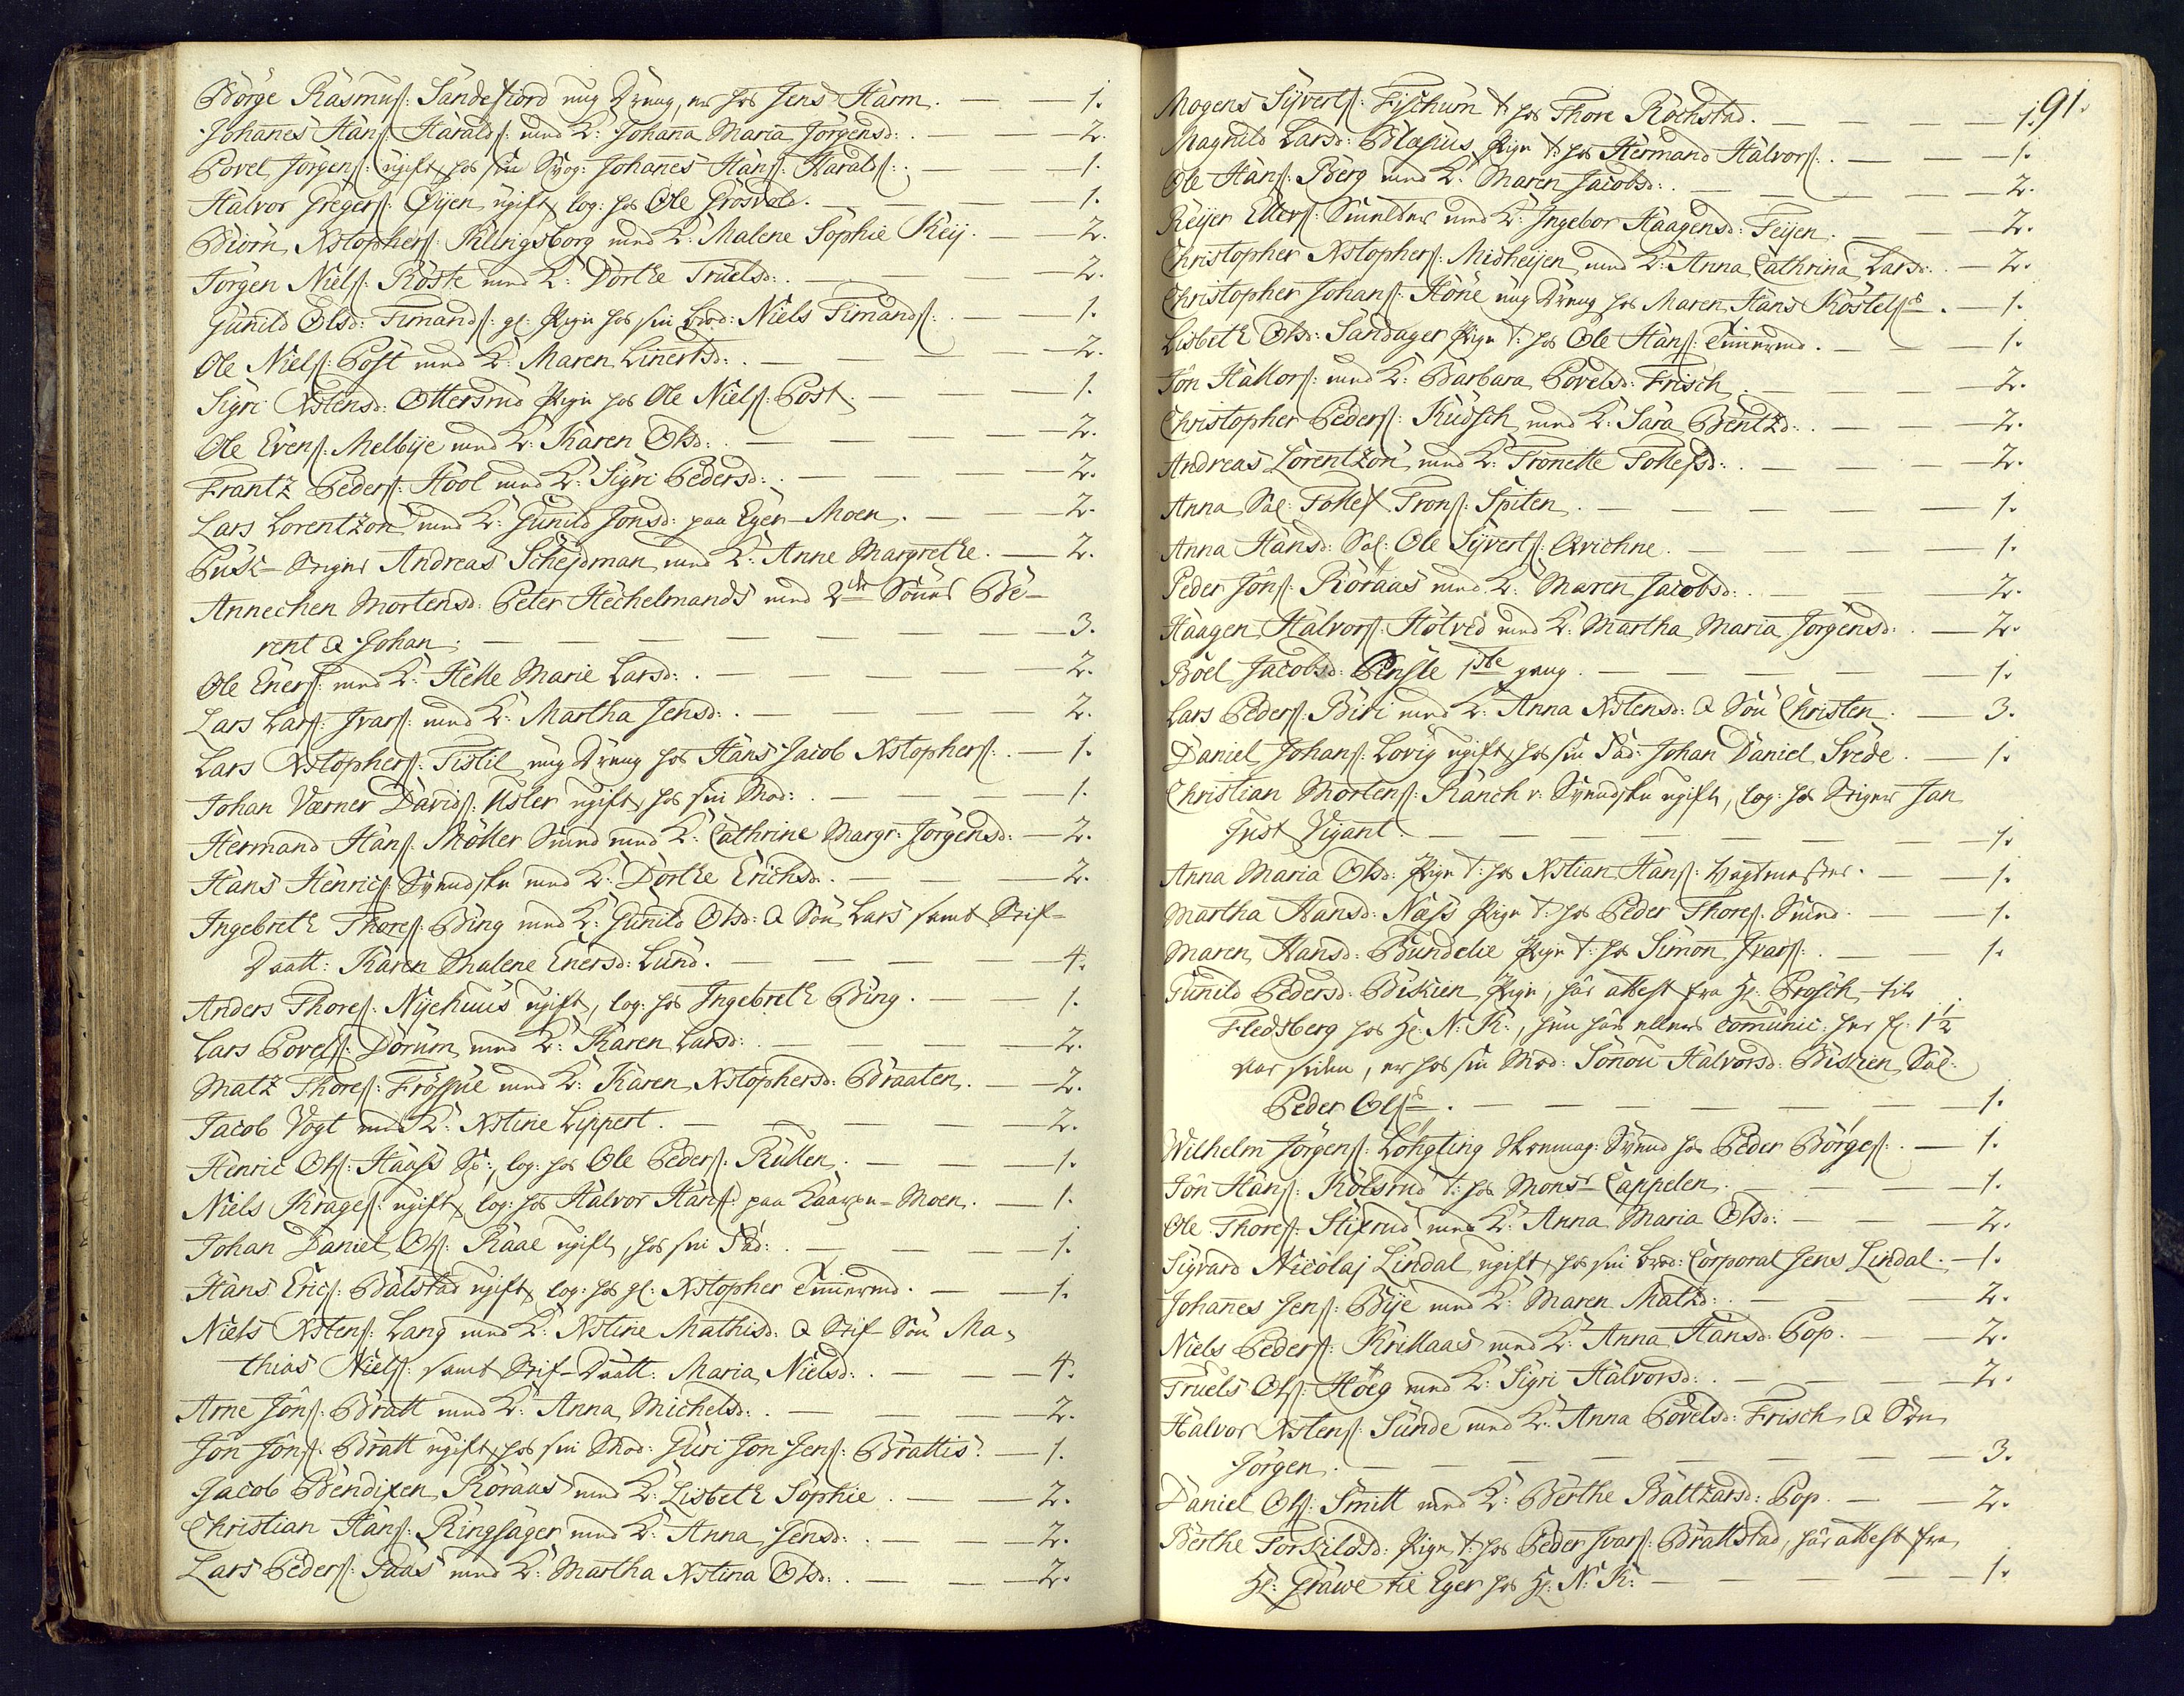 Börge Rasmuss: Sandefiord ung Dreng, er hos Jens Harm. — — 1.
Johanes Hans: Haralds: med K: Johana Maria Jörgensd: . — — 2.
Povel Jörgens: ugift, hos sin Svog: Johanes Hans: Haralds: . — — 1.
Halvor Gregers: Öyen ugift, log: hos Ole Grosvold. — — — 1.
Biörn Xstophers: Klingsborg med K: Malene Sophie Keij. — 2.
Jörgen Niels: Röste med K: Dorthe Truelsd: . — — — 2.
Gunild Olsd: Timands: gl: Pige hos sin Brod: Niels Timands: . — 1.
Ole Niels: Post med K: Maren Linertsd: . — — — 2.
Sigri Xstensd: Ottersrud Pige hos Ole Niels: Post. — — 1.
Ole Evens: Melbÿe med K: Karen Olsd: . — — — 2.
Frantz Peders: Hool med K: Sigri Pedersd: . — — — 2.
Lars Lorentzon med K: Gunild Jonsd: paa Eger-Moen. — — 2.
Puk-Stiger Andreas Schejdman med K: Anne Margrethe. — 2.
Annechen Mortensd: Peter Hechelmands med 2de Sönner Be-
rent & Johan. — — — — — 3.
Ole Eners: med K: Helle Marie Larsd: . — — — 2.
Lars Lars: Ivars: med K: Martha Jensd: . — — — 2.
Lars Xstophers: Tistil ung Dreng hos Hans Jacob Xstophers: . — 1.
Johan Værner Davids: Usler ugift, hos sin Mod: . — — — 1.
Hermand Hans: Möller Smed med K: Cathrine Margr: Jörgensd: — 2.
Hans Henrics: Svendske med K: Dorthe Erichsd: . — — — 2.
Ingebreth Thores: Bing med K: Gunild Olsd: & Sön Lars samt Stif-
Daatt: Karen Malene Enersd: Lund. — — — 4.
Anders Thores: Nÿehuus ugift, log: hos Ingebreth Bing. — — 1.
Lars Povels: Dörum med K: Karen Larsd: . — — — 2.
Matz Thores: Frössue med K: Karen Xstophersd: Braaten. — 2.
Jacob Vogt med K: Xstine Lippert. — — — — 2.
Henric Ols: Haass , log: hos Ole Peders: Rullen. — — — 1.
Niels Krages: ugift, log: hos Halvor Hans: paa Kaarene-Moen. — 1.
Johan Daniel Ols: Raae ugift, hos sin Fad: . — — — 1.
Hans Erics: Balstad ugift, log: hos gl: Xstopher Timermd. — — 1.
Niels Xstens: Lang med K: Xstine Mathisd: & Stif-Sön Ma-
thias Niels: samt Stif-Daatt: Maria Nielsd: . — — — 4.
Arne Jöns: Bratt med K: Anna Michelsd: . — — — 2.
Jön Jöns: Bratt ugift, hos sin Mod: Guri Jon Jens: Brattis. — 1.
Jacob Bendixen Röraas med K: Lisbeth Sophie. — — 2.
Christian Hans: Ringsager med K: Anna Jensd: . — — 2.
Lars Peders: Saas med K: Martha Xstina Olsd: . — — 2.
91.
Mogens Sÿverts: Fischum t: hos Thore Rochstad. — — — 1.
Magnild Larsd: Blæsius Pige t: hos Hermand Halvors: . — — 1.
Ole Hans: Berg med K: Maren Jacobsd: . — — — 2.
Reÿer Ellers: Smelter med K: Ingebor Haagensd: Feÿen. — — 2.
Christopher Xstophers: Midheÿen med K: Anna Cathrina Larsd: . — 2.
Christopher Johans: Höne ung Dreng hos Maren Hans Kostels. — 1.
Lisbeth Olsd: Sandager Pige t: hos Ole Hans: Timermd. — — 1.
Jön Hallors: med K: Barbara Povelsd: Frisch. — — — 2.
Christopher Peders: Kudsch med K: Sara Bentzd: . — — — 2.
Andreas Lorentzon med K: Tronette Tollefsd: . — — — 2.
Anna Sal: Tollef Trons: Spiten. — — — — 1.
Anna Hansd: Sal: Ole Sÿverts: Qvichne. — — — — 1.
Peder Jöns: Röraas med K: Maren Jacobsd: . — — — 2.
Haagen Halvors: Hotved med K: Martha Maria Jörgensd: . — 2.
Boel Jacobsd: Penste 1ste gang. — — — — 1.
Lars Peders: Biri med K: Anna Xstensd: & Sön Christen. — 3.
Daniel Johans: Lovig ugift, hos sin Fad: Johan Daniel Svede. — 1.
Christian Mortens: Ranch v: Svendske ugift, log: hos Stiger Jan
Just Vigant. — — — — — 1.
Anna Maria Olsd: Pige t: hos Xstian Hans: Vagtmester. — — 1.
Martha Hansd: Næss Pige t: hos Peder Thores: Smed. — — 1.
Maren Hansd: Bundelie Pige t: hos Simon Ivars: . — — 1.
Gunild Pedersd: Biskien Pige, har attest fra Hr: Prosch til
Fledsberg hos Hr: N: K:, hun har ellers comunic: her f: 1½
aar siden, er hos sin Mod: Sönou Halvorsd: Biskien Sal:
Peder Ols. — — — — — 1.
Wilhelm Jörgens: Lohgting Skomag: Svend hos Peder Börges: . — 1.
Jön Hans: Kolsrud t: hos Monsr Cappelen. — — — 1.
Ole Thores: Stixrud med K: Anna Maria Olsd: — — 2.
Sigvard Nicolaj Lindal ugift, hos sin Brod: Corporal Jens Lindal. — 1.
Johanes Jens: Bÿe med K: Maren Matzd: . — — — 2.
Niels Peders: Krillaas med K: Anna Hansd: Pop. — — 2.
Truels Ols: Höeg med K: Sigri Halvorsd: . — — — 2.
Halvor Xstens: Sunde med K: Anna Povelsd: Frisch & Sön
Jörgen. — — — — — 3.
Daniel Ols: Smitt med K: Berthe Baltzarsd: Pop. — — 2.
Berthe Torkildsd: Pige t: hos Peder Ivars: Brattstad, har attest fra
Hr: Grawe til Eger hos Hr: N: K: — — — 1.